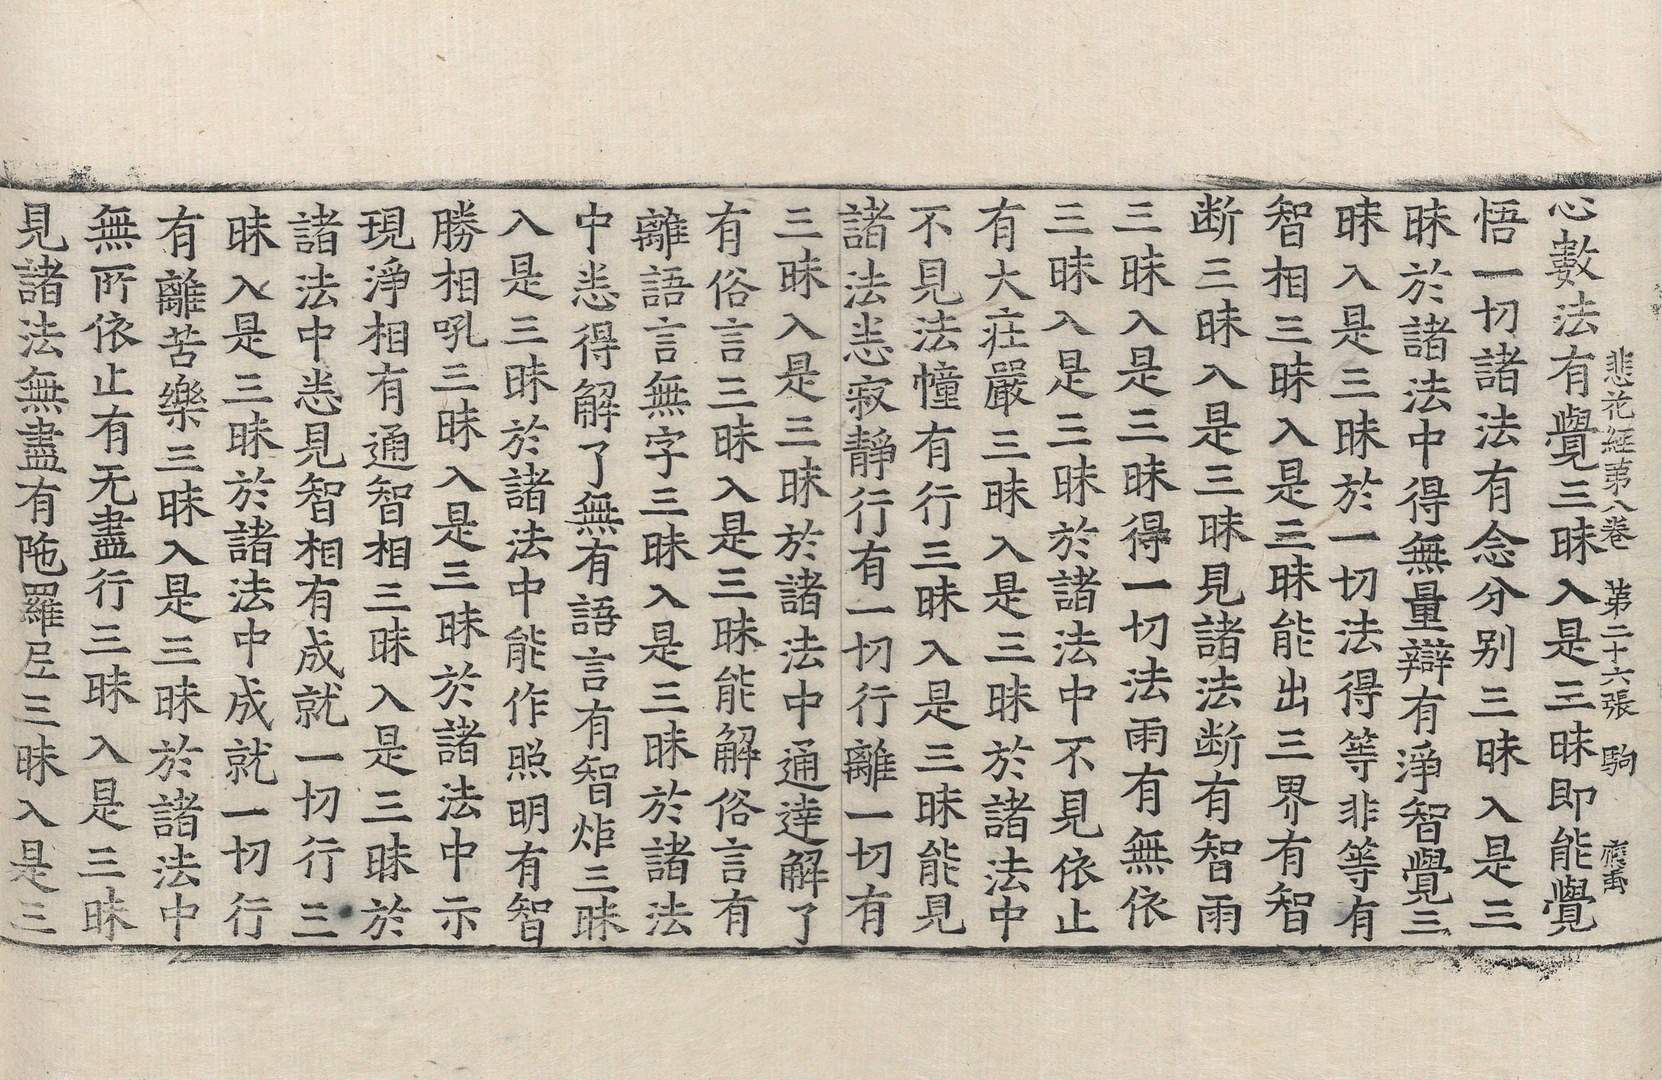 悲花経第八巻　第二十六張　駒
心數法有覺三昧入是三昧即能覺
悟一切諸法有念分别三昧入是三
昧於諸法中得無量辯有淨智覺三
昧入是三昧於一切法得等非等有
智相三昧入是三昧能出三界有智
断三昧入是三昧見諸法断有智雨
三昧入是三昧得一切法雨有無依
三昧入是三昧於諸法中不見依止
有大庄嚴三昧入是三昧於諸法中
不見法幢有行三昧入是三昧能見
諸法悉寂靜行有一切行離一切有
三昧入是三昧於諸法中通達解了
有俗言三昧入是三昧能解俗言有
離語言無字三昧入是三昧於諸法
中悉得解了無有語言有智炬三昧
入是三昧於諸法中能作照明有智
勝相吼三昧入是三昧於諸法中示
現淨相有通智相三昧入是三昧於
諸法中悉見智相有成就一切行三
昧入是三昧於諸法中成就一切行
有離苦樂三昧入是三昧於諸法中
無所依止有无盡行三昧入是三昧
見諸法無盡有陁羅尼三昧入是三